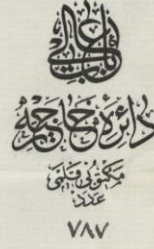 باب عالی
دائرهٔ خارجیه
مکتوبی قلمی
عدد
٧٨٧